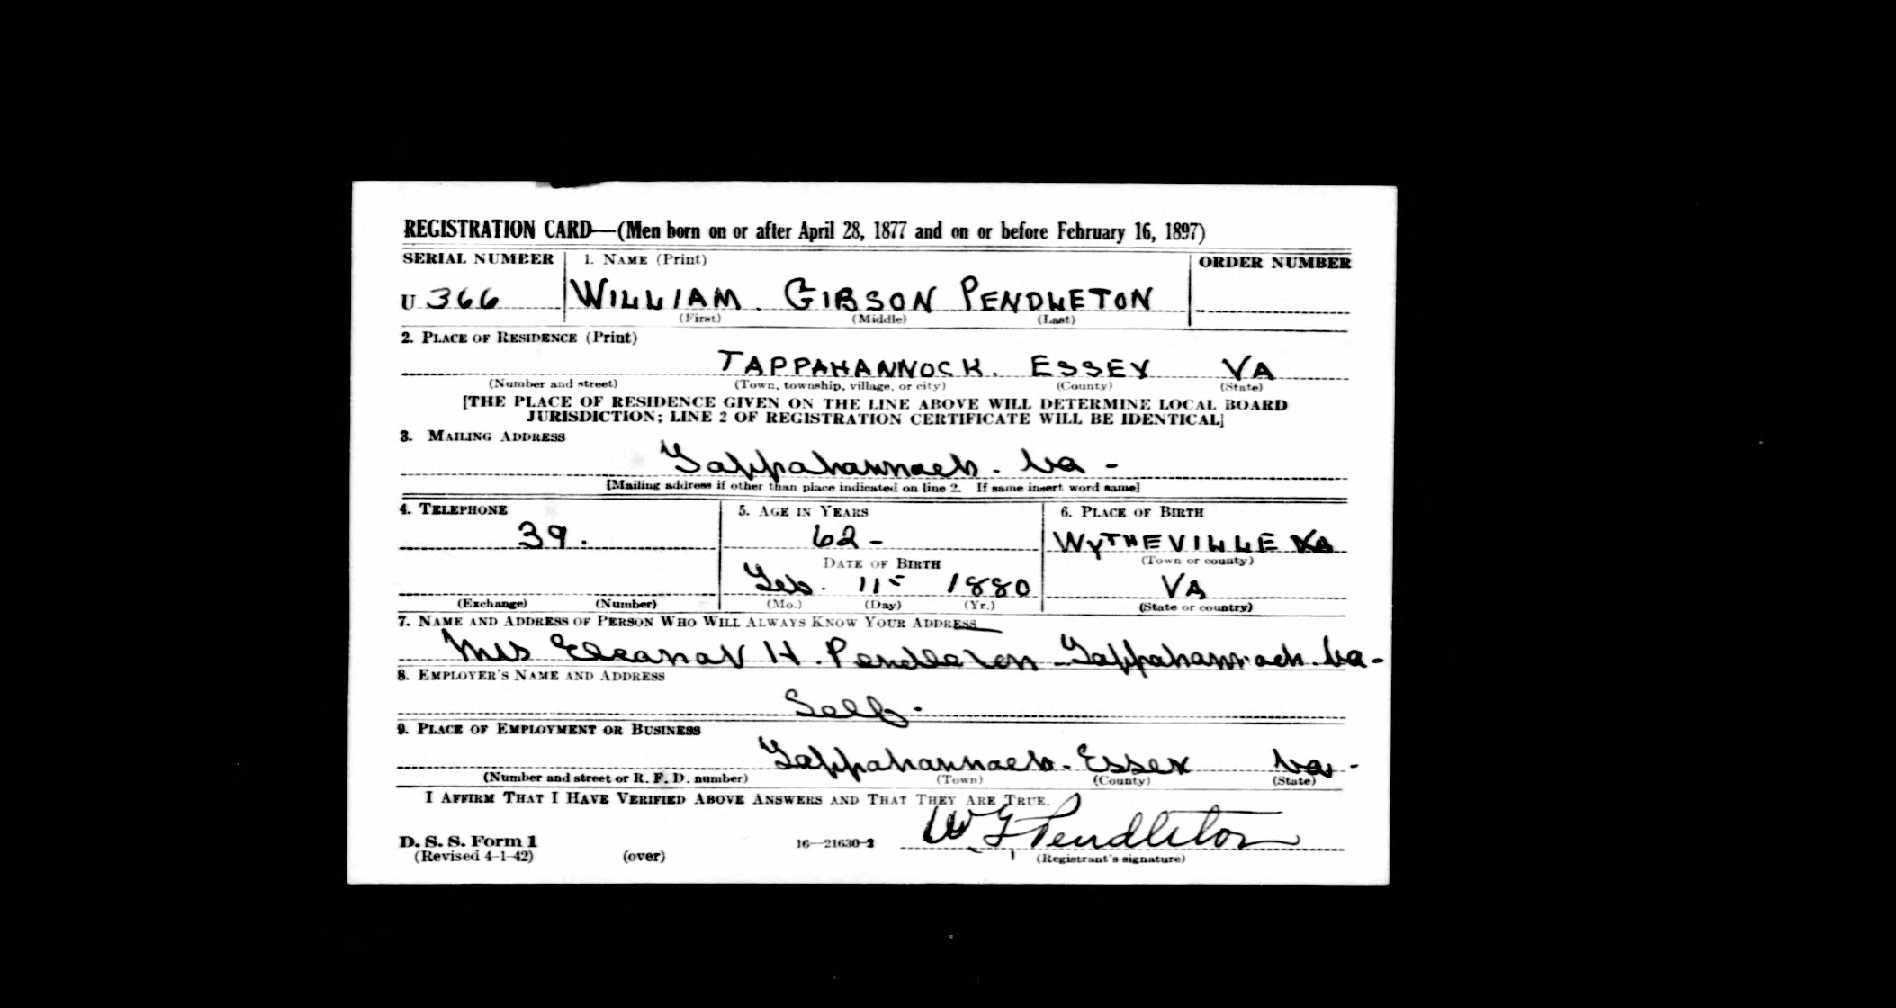 REGISTRATION CARD—(Men born on or after April 28, 1877 and on or before February 16, 1897)
SERIAL NUMBER 1. NAME (Print) ORDER NUMBER
U 366 WILLIAM. GIBSON PENDLETON
(First) (Middle) (Last)
2. PLACE OF RESIDENCE (Print)
TAPPAHANNOCK. ESSEX VA
(Number and street) (Town, township, village, or city) (County) (State)
[THE PLACE OF RESIDENCE GIVEN ON THE LINE ABOVE WILL DETERMINE LOCAL BOARD
JURISDICTION; LINE 2 OF REGISTRATION CERTIFICATE WILL BE IDENTICAL]
3. MAILING ADDRESS
Tappahannock. Va -
[Mailing address if other than place indicated on line 2. If same insert word same]
4. TELEPHONE 5. AGE IN YEARS 6. PLACE OF BIRTH
39. 62 - WYTHEVILLE VA
DATE OF BIRTH (Town or county)
Feb. 11 - 1880 VA
(Exchange) (Number) (Mo.) (Day) (Yr.) (State or country)
7. NAME AND ADDRESS OF PERSON WHO WILL ALWAYS KNOW YOUR ADDRESS
Mrs Eleanor H. Pendleton - Tappahannock. Va -
8. EMPLOYER'S NAME AND ADDRESS
Self.
9. PLACE OF EMPLOYMENT OR BUSINESS
Tappahannock. Essex Va -
(Number and street or R. F. D. number) (Town) (County) (State)
I AFFIRM THAT I HAVE VERIFIED ABOVE ANSWERS AND THAT THEY ARE TRUE.
W G Pendleton
D. S. S. Form 1 16—21630-2
(Revised 4-1-42) (over) (Registrant's signature)